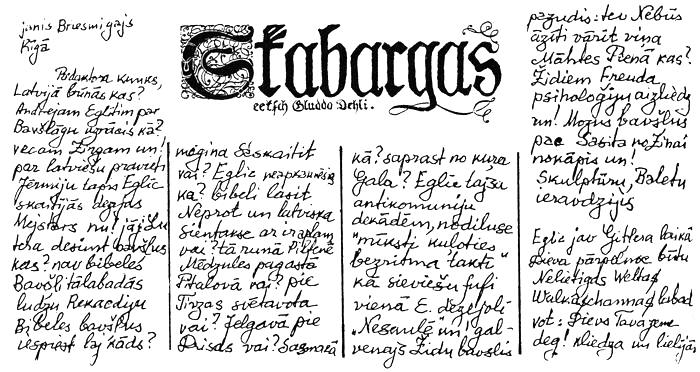 Jānis Briesmīgājs
Rīgā
Redaktora kungs,
Latvijā būnās kas?
Andrejam Eglītim par
Bavslāgu ugrācis kā?
vecam Zirgam un!
par latviešu pravieti
Jērmiju taps Eglīc
skaitījās degtas
Mejstars nu!
tcha desiunt bavslus
kas? nav bībeles
Bavsli tālabadās
ludzu Rekacdiju
Bībeles bavslus
iespiest laj kāds?
Skabargas
eetsch Gluddo Dehli.
mēgina Saskaitīt
vai? Eglīc
ka? bībeli lasīt
Neprot un latviska
sientakse ar ir aplam
vai? tā runā Piltenē
Medzules pagastā
Pitalovā vai? pie
Tirzas svētavota
vai? Jelgavā pie
Driksas vai? Sasmakā
kā? saprast no kura
Gala? Eglīc tajsu
antikomuniju
dekādēm, nodiluse
"mūksti kuloties
bezritma takti"
kā sieviešu fufi
vienā E. dezeļolī
"Nesaulē un! gal-
venajs Zidu bavslis
pazudis: tev Nebūs
āzīti vārīt viņa
Māhtes Pienā kas?
Zidiem Freuda
psiholoģiju aizliedz
un! Mozus bavslus
pae Sasita no Zinai
nokāpis un!
Skulptūru, Baletu
ieravdzijis
Eglīc jav Gitlera laikā
Dieva pārpolmoe būtu
Nelietigas Weltas
Walkahschannas labad
vot: Dievs Tava zeme
deg! kliedza un lielijās